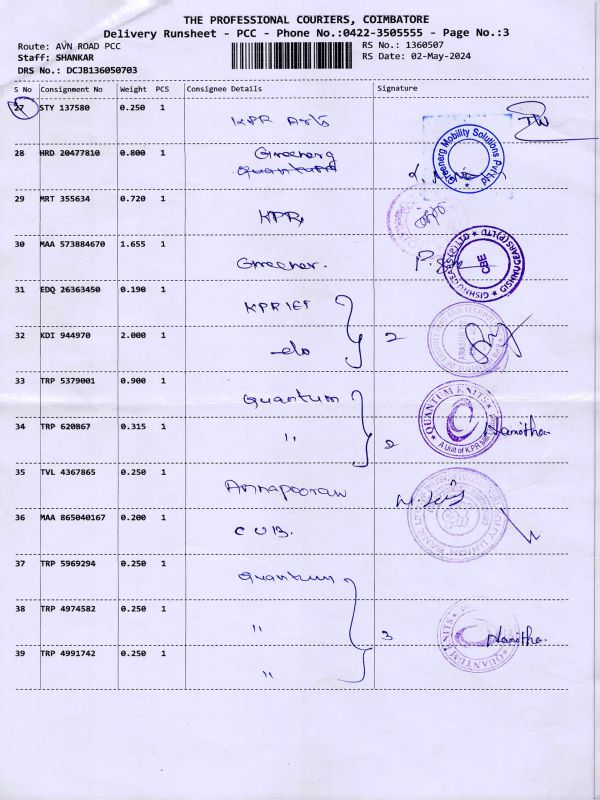 THE PROFESSIONAL COURIERS, COIMBATORE
Delivery Runsheet - PCC - Phone No.:0422-3505555 - Page No.:3
Route: AVN ROAD PCC RS No.: 1360507
Staff: SHANKAR RS Date: 02-May-2024
DRS No.: DCJB136050703
S No Consignment No Weight PCS Consignee Details Signature
27 STY 137580 0.250 1
KPR Arts
28 HRD 20477810 0.800 1 Greenerg
Quantum
Greenerg Mobility Solutions Pvt Ltd
29 MRT 355634 0.720 1
KPR
30 MAA 573884670 1.655 1
Greener.
GISHNU GEARS (P) LTD
CBE
31 EDQ 26363450 0.190 1
KPRIET
32 KDI 944970 2.000 1
-do 2
33 TRP 5379001 0.900 1
Quantum
QUANTUM KNITS
A Unit of K.P.R Mill
34 TRP 620867 0.315 1
" 2 Hanitha
35 TVL 4367865 0.250 1
Annapooran
36 MAA 865040167 0.200 1
CUB.
37 TRP 5969294 0.250 1
Quantum
38 TRP 4974582 0.250 1
" 3 Hanitha.
QUANTUM KNITS
39 TRP 4991742 0.250 1
"